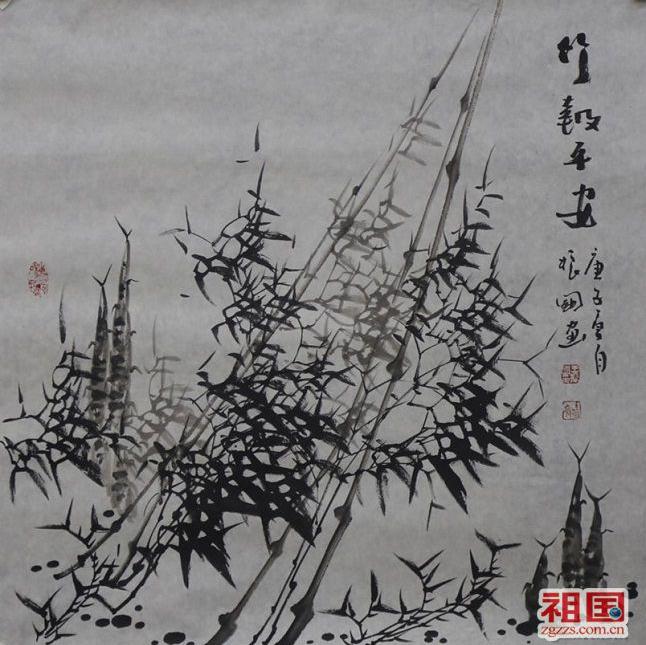 竹報平安
庚子夏月
振國画
祖国
zgzzs.com.cn